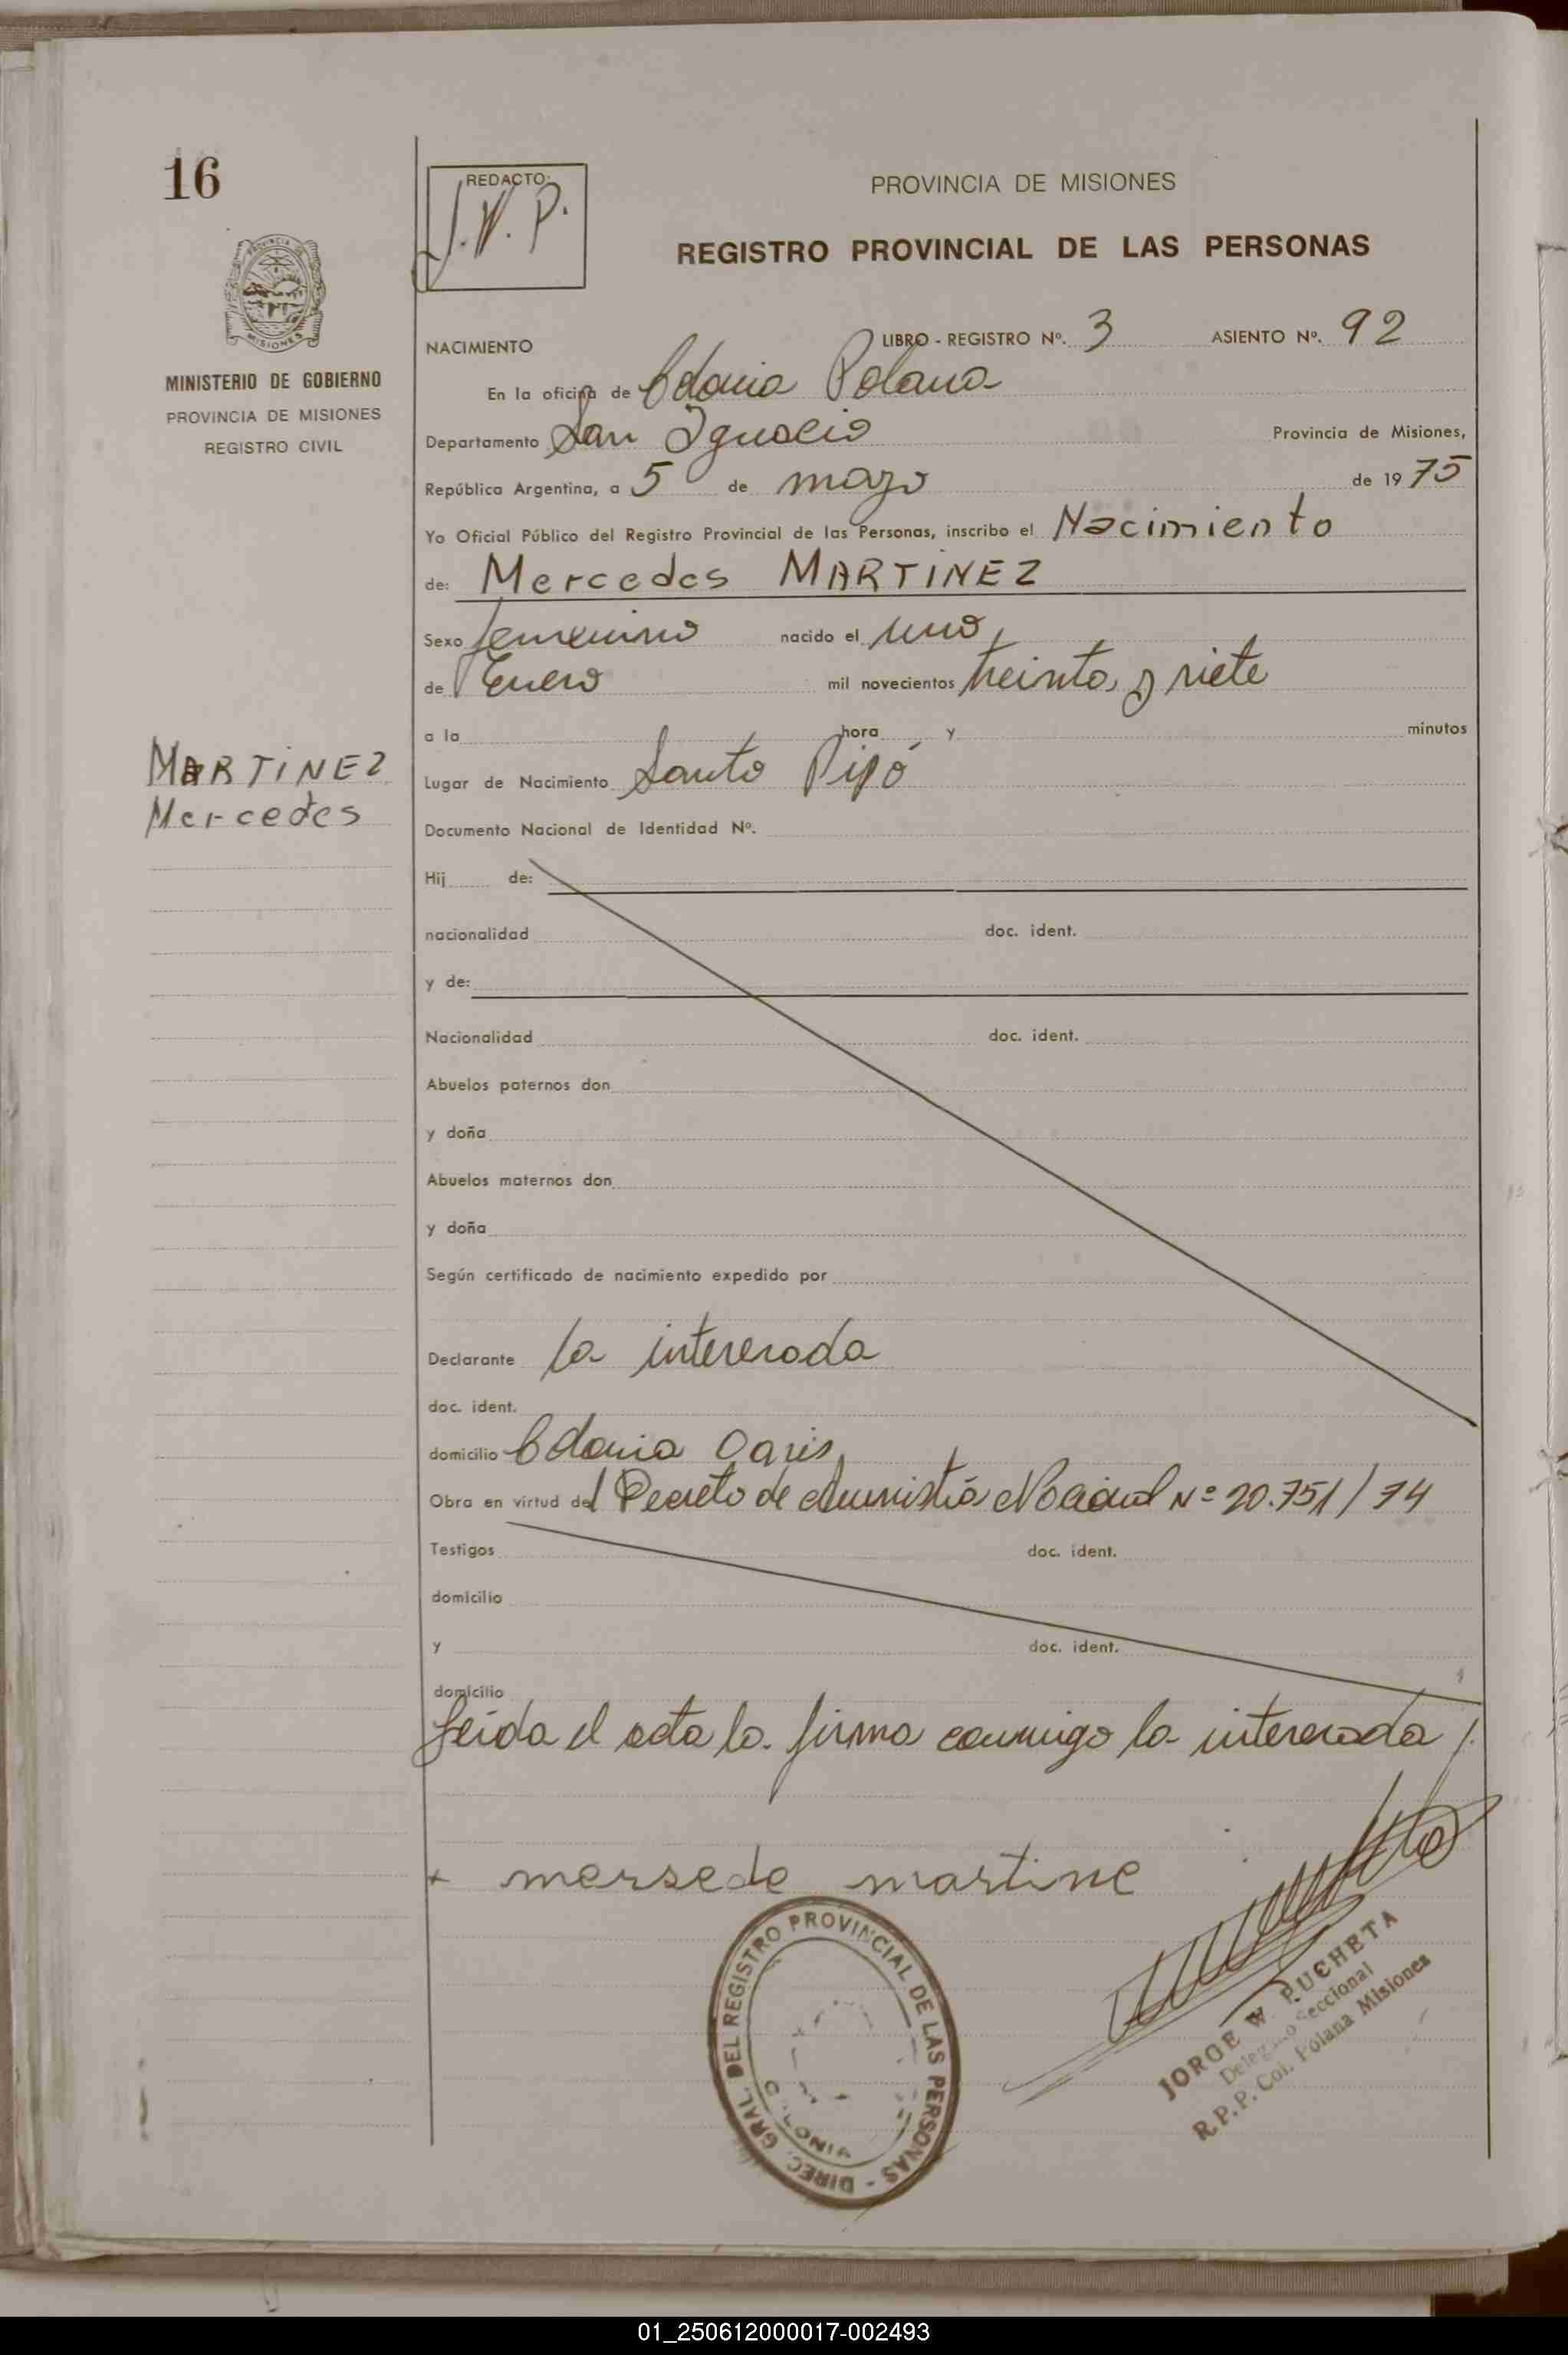 16
REDACTO:
J.W.P.
PROVINCIA DE MISIONES
REGISTRO PROVINCIAL DE LAS PERSONAS
MINISTERIO DE GOBIERNO
PROVINCIA DE MISIONES
REGISTRO CIVIL
NACIMIENTO LIBRO - REGISTRO Nº. 3 ASIENTO Nº. 92
En la oficina de Colonia Polana
Departamento San Ignacio Provincia de Misiones,
República Argentina, a 5 de mayo de 1975
Yo Oficial Público del Registro Provincial de las Personas, inscribo el Nacimiento
de: Mercedes MARTINEZ
Sexo femenino nacido el uno,
de Enero mil novecientos treinta y siete
a la hora y minutos
MARTINEZ
Mercedes
Lugar de Nacimiento Santo Pipó
Documento Nacional de Identidad Nº.
Hij de:
nacionalidad doc. ident.
y de:
Nacionalidad doc. ident.
Abuelos paternos don
y doña
Abuelos maternos don
y doña
Según certificado de nacimiento expedido por
Declarante la interesada
doc. ident.
domicilio Colonia Oasis,
Obra en virtud del Decreto de Amnistía Nacional Nº 20.751/74
Testigos doc. ident.
domicilio
y doc. ident.
domicilio
Leída el acta la firma conmigo la interesada
+ mersede martine
DIREC. GRAL. DEL REGISTRO PROVINCIAL DE LAS PERSONAS -
JORGE W. PUCHETA
Delegado Seccional
R.P.P. Col. Polana Misiones
01_250612000017-002493